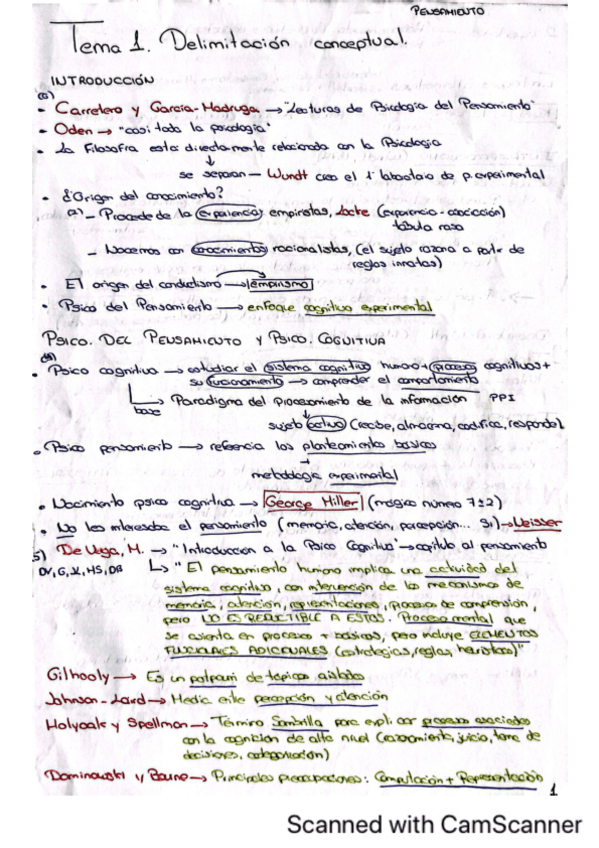 PENSAMIENTO
Tema 1. Delimitación conceptual.
INTRODUCCIÓN
- Carretero y García-Madruga → "Lecturas de Psicología del Pensamiento"
- Oden → "casi toda la psicología"
• La Filosofía esta directamente relacionada con la Psicología
↓
se separan — Wundt crea el 1er laboratorio de p. experimental
• ¿Origen del conocimiento?
- Procede de la experiencia: empiristas, Locke (experiencia - asociación)
tábula rasa
- Nacemos con conocimientos racionalistas, (el sujeto razona a partir de
reglas innatas)
• El origen del conductismo → empirismo
• Psico del Pensamiento → enfoque cognitivo experimental
PSICO. DEL PENSAMIENTO Y PSICO. COGNITIVA
• Psico cognitiva → estudiar el sistema cognitivo humano + procesos cognitivos +
su funcionamiento → comprender el comportamiento
base → Paradigma del Procesamiento de la información PPI
↓
sujeto activo (recibe, almacena, codifica, responde)
• Psico pensamiento → referencia los planteamientos básicos
metodología experimental
• Nacimiento psico cognitiva → George Miller (mágico número 7±2)
• No les interesaba el pensamiento (memoria, atención, percepción... sí) → Neisser
De Vega, M. → "Introducción a la Psico Cognitiva" → capítulo al pensamiento
DV, G, JL, HS, DB ↳ "El pensamiento humano implica una actividad del
sistema cognitivo, con intervención de los mecanismos de
memoria, atención, representaciones, procesos de comprensión,
pero NO ES REDUCTIBLE A ESTOS. Proceso mental que
se asienta en procesos + básicos, pero incluye ELEMENTOS
FUNCIONALES ADICIONALES (estrategias, reglas, heurístico)"
Gilhooly → Es un potpurri de tópicos aislados
Johnson-Laird → Media entre percepción y atención
Holyoak y Spellman → Término Sombrilla para explicar procesos asociados
con la cognición de alto nivel (razonamiento, juicio, toma de
decisiones, categorización)
Dominowski y Bourne → Principales preocupaciones: Computación + Representación
1
Scanned with CamScanner